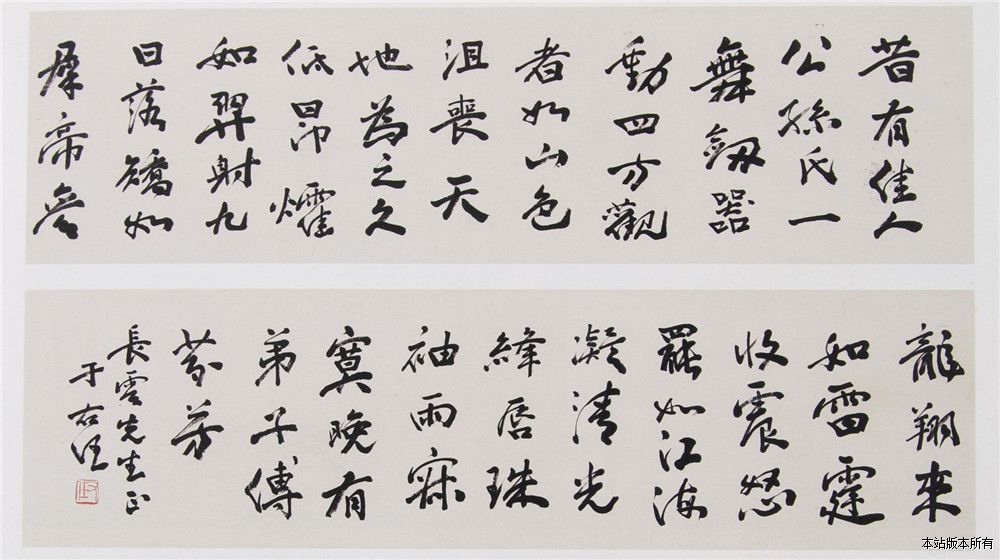 昔有佳人
公孫氏一
舞劍器
動四方觀
者如山色
沮喪天
地為之久
低昂㸌
如羿射九
日落矯如
羣帝參
龍翔來
如雷霆
收震怒
罷如江海
凝清光
絳唇珠
袖兩寂
寞晚有
弟子傳
芬芳
長雲先生正
于右任
本站版本所有